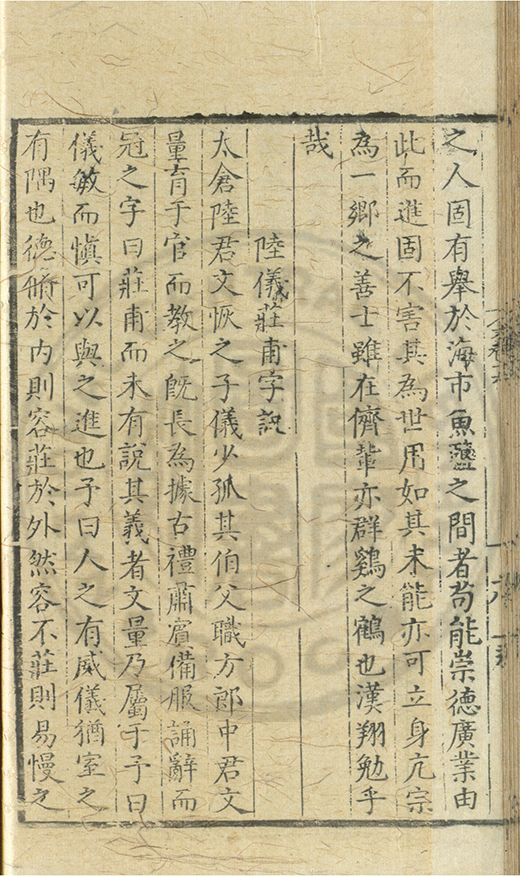 之人固有舉於海市魚鹽之間者苟能崇德廣業由
此而進固不害其為世用如其未能亦可立身亢宗
為一鄉之善士雖在儕輩亦群鷄之鶴也漢翔勉乎
哉
陸儀莊甫字說
太倉陸君文恢之子儀少孤其伯父職方郎中君文
量育于官而教之旣長為據古禮肅賓備服誦辭而
冠之字曰莊甫而未有說其義者文量乃屬于予曰
儀敏而愼可以與之進也予曰人之有威儀猶室之
有隅也德脩於內則容莊於外然容不莊則易慢之